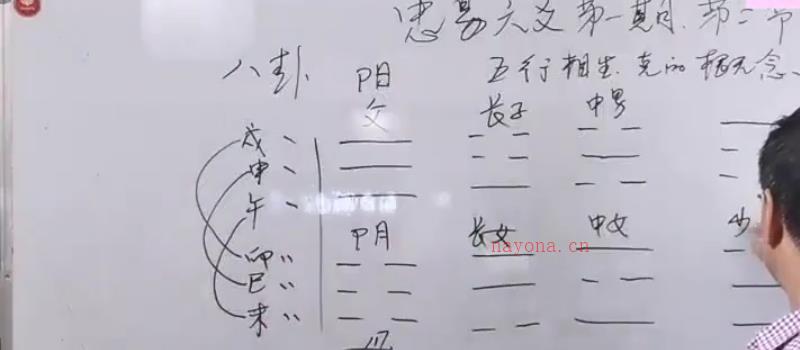 忠易六爻第一期.第二节
八卦 阳 五行相生.克的概念、
父 长子 中男
戌
申
午
阴 长女 中女 少
nayona.cn
卯
巳
未